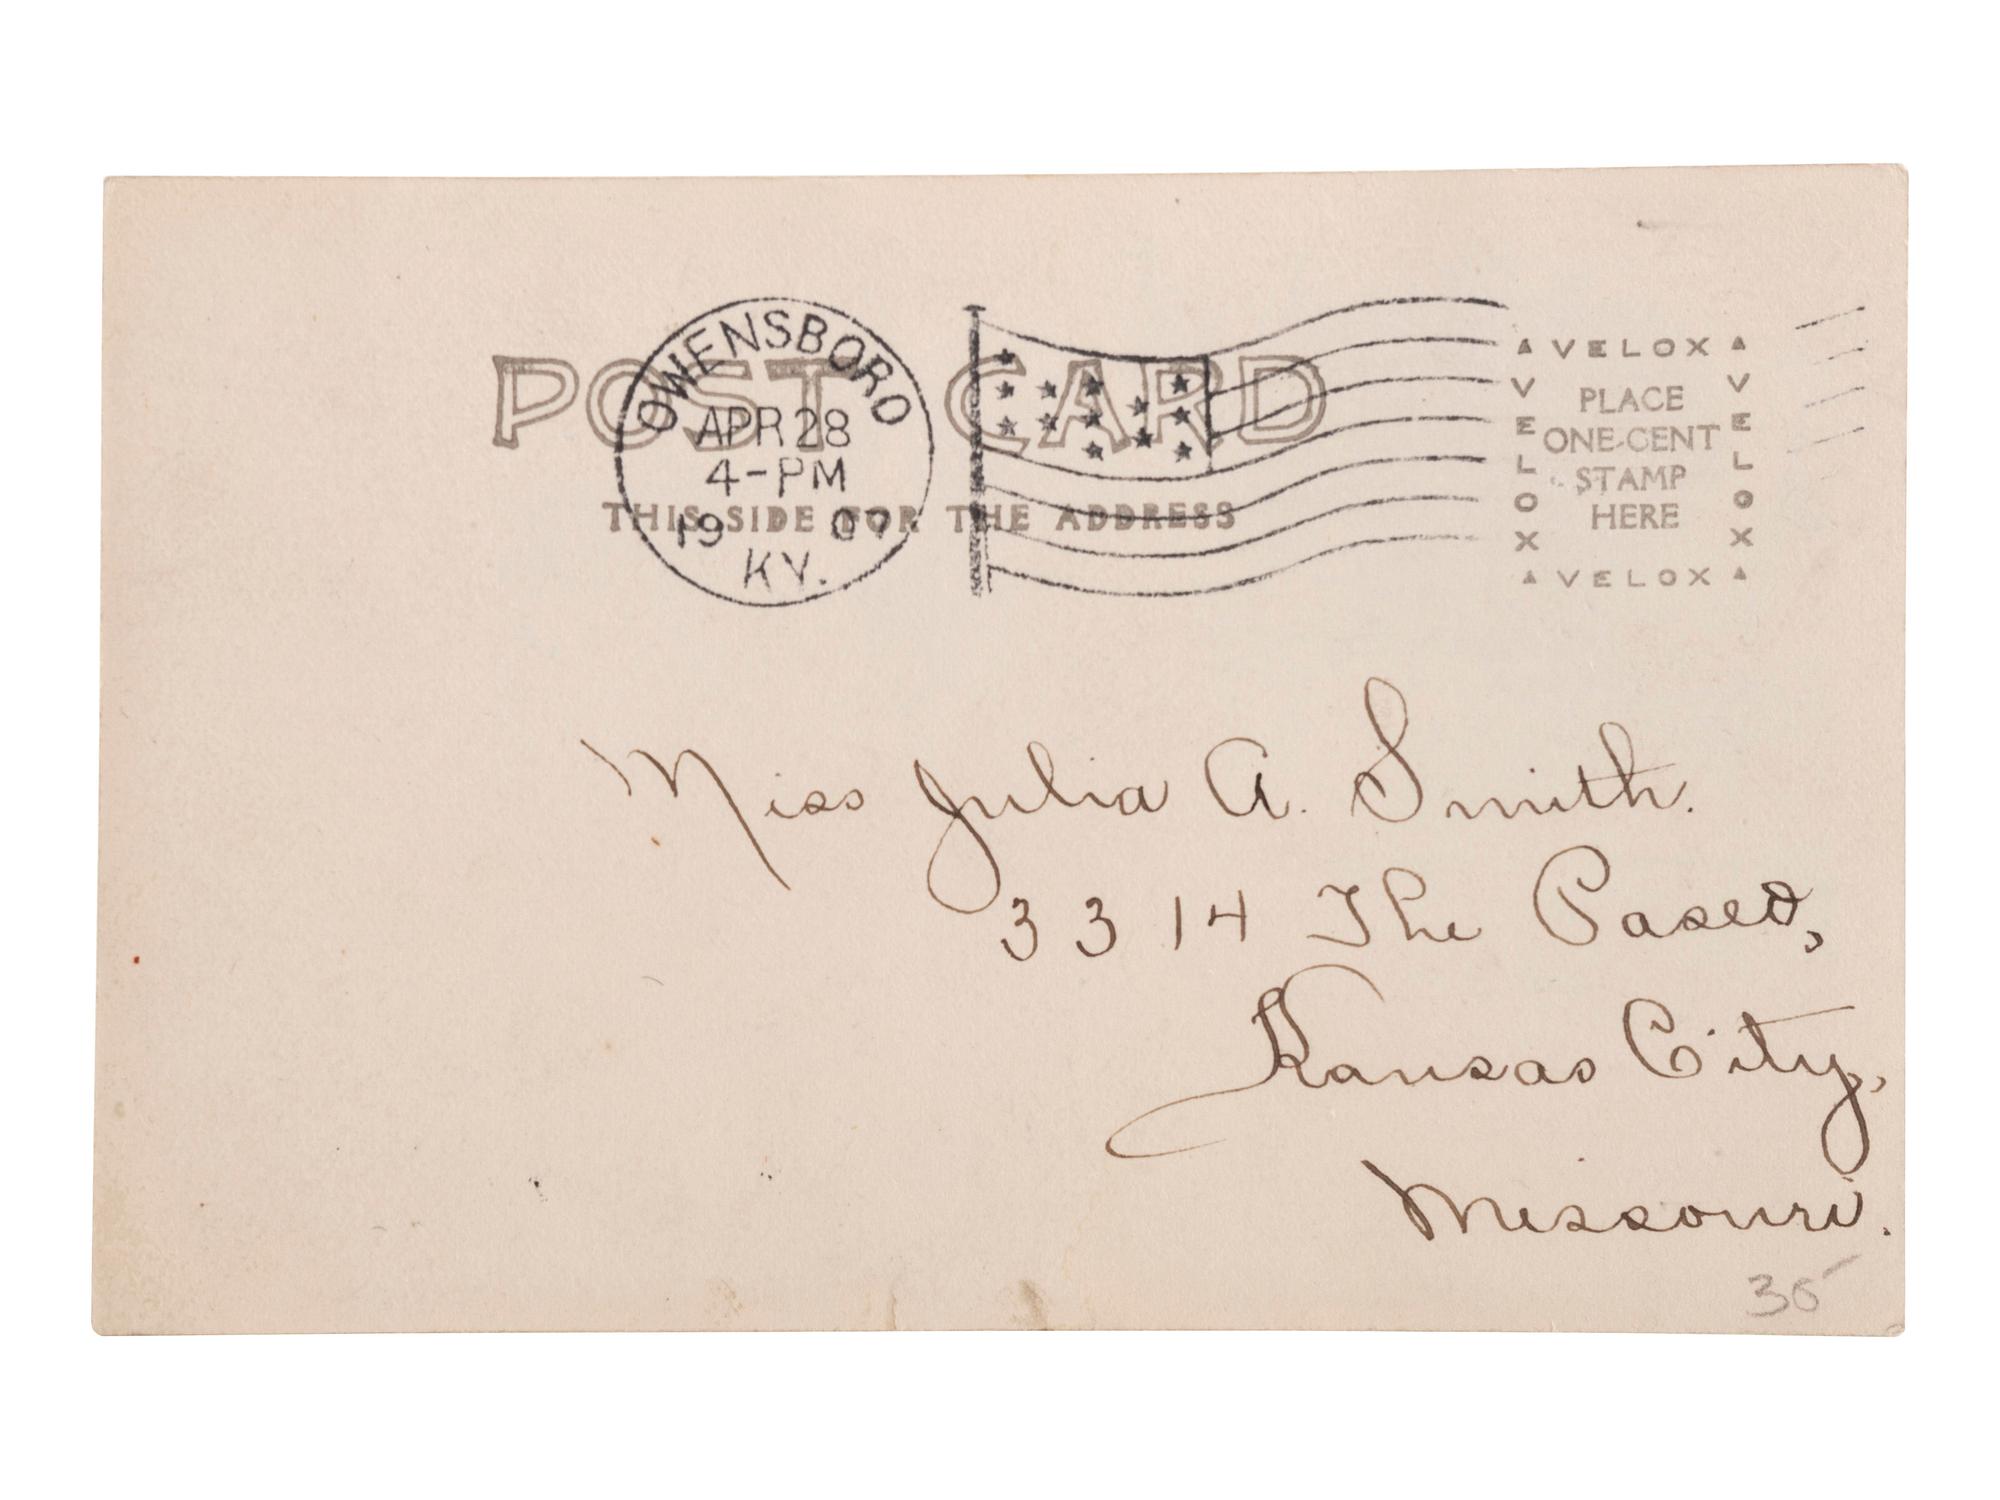 POST CARD
THIS SIDE FOR THE ADDRESS
OWENSBORO
APR 28
4-PM
19 07
KY.
VELOX
VELOX
VELOX
VELOX
PLACE
ONE-CENT
STAMP
HERE
Miss Julia A. Smith.
3314 The Paseo,
Kansas City,
Missouri.
35